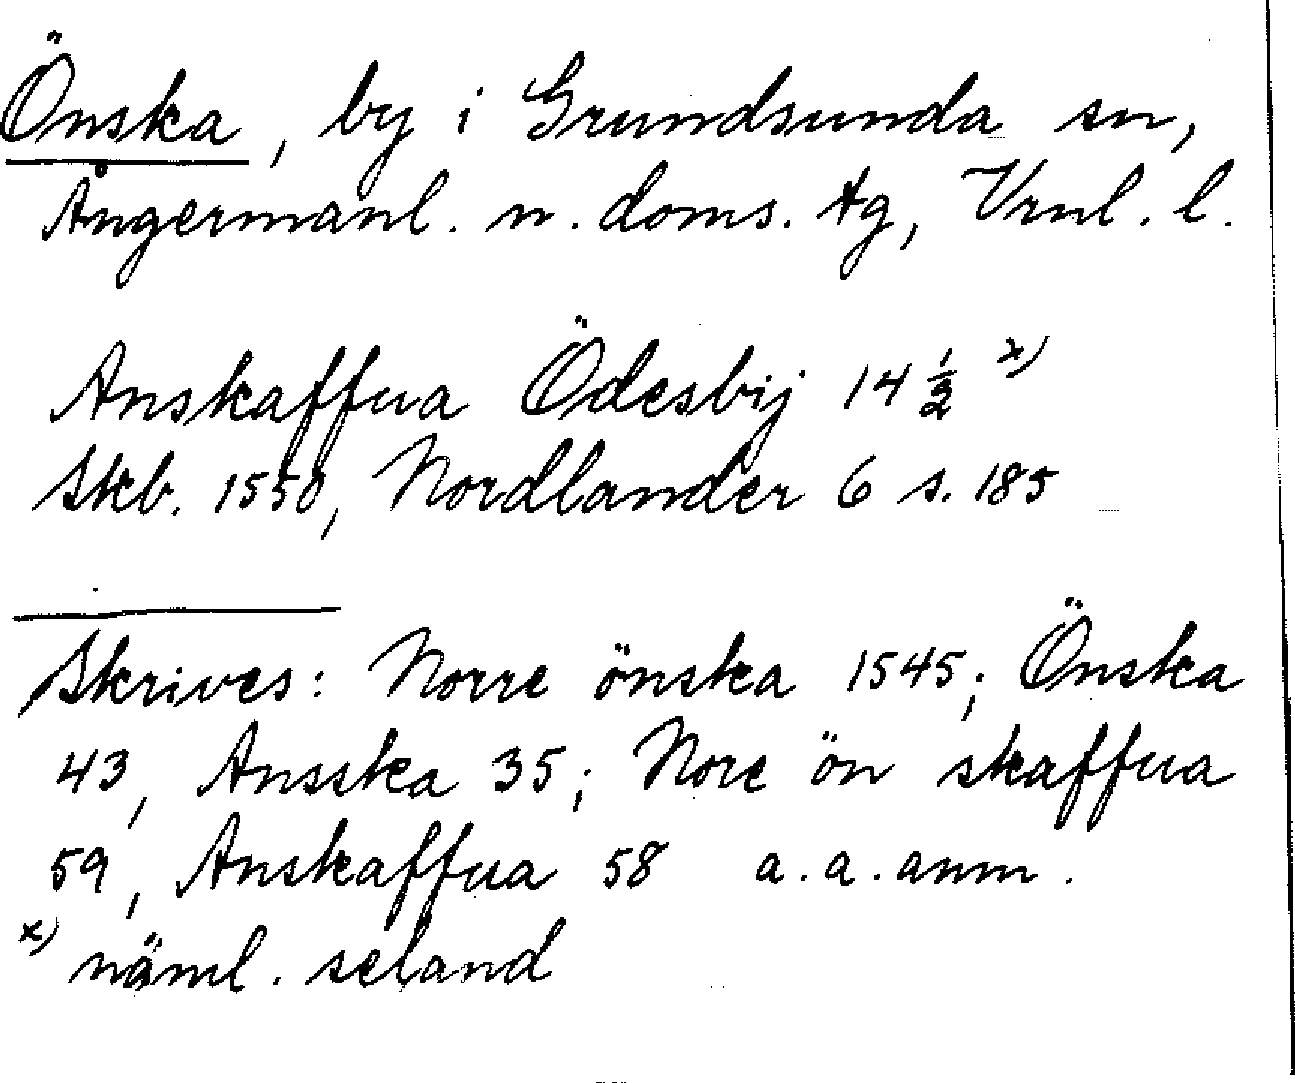 Önska, by i Grundsunda sn,
Ångermanl. n. doms. tg, Vrnl. l.
Anskaffua Ödesbij 14 ½ x)
Skb. 1550, Nordlander 6 s. 185
Skrives: Norre önska 1545; Önska
43, Ansska 35; Nore ön skaffua
59, Anskaffua 58 a. a. anm.
x) näml. seland